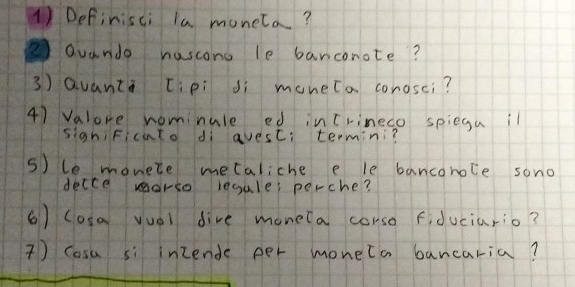 1) Definisci la moneta?
2) Quando nascono le banconote?
3) Quanti tipi di moneta conosci?
4) Valore nominale ed intrineco spiega il
significato di questi termini?
5) Le monete metaliche e le banconote sono
dette corso legale; perche?
6) Cosa vuol dire moneta corso fiduciario?
7) Cosa si intende per moneta bancaria?